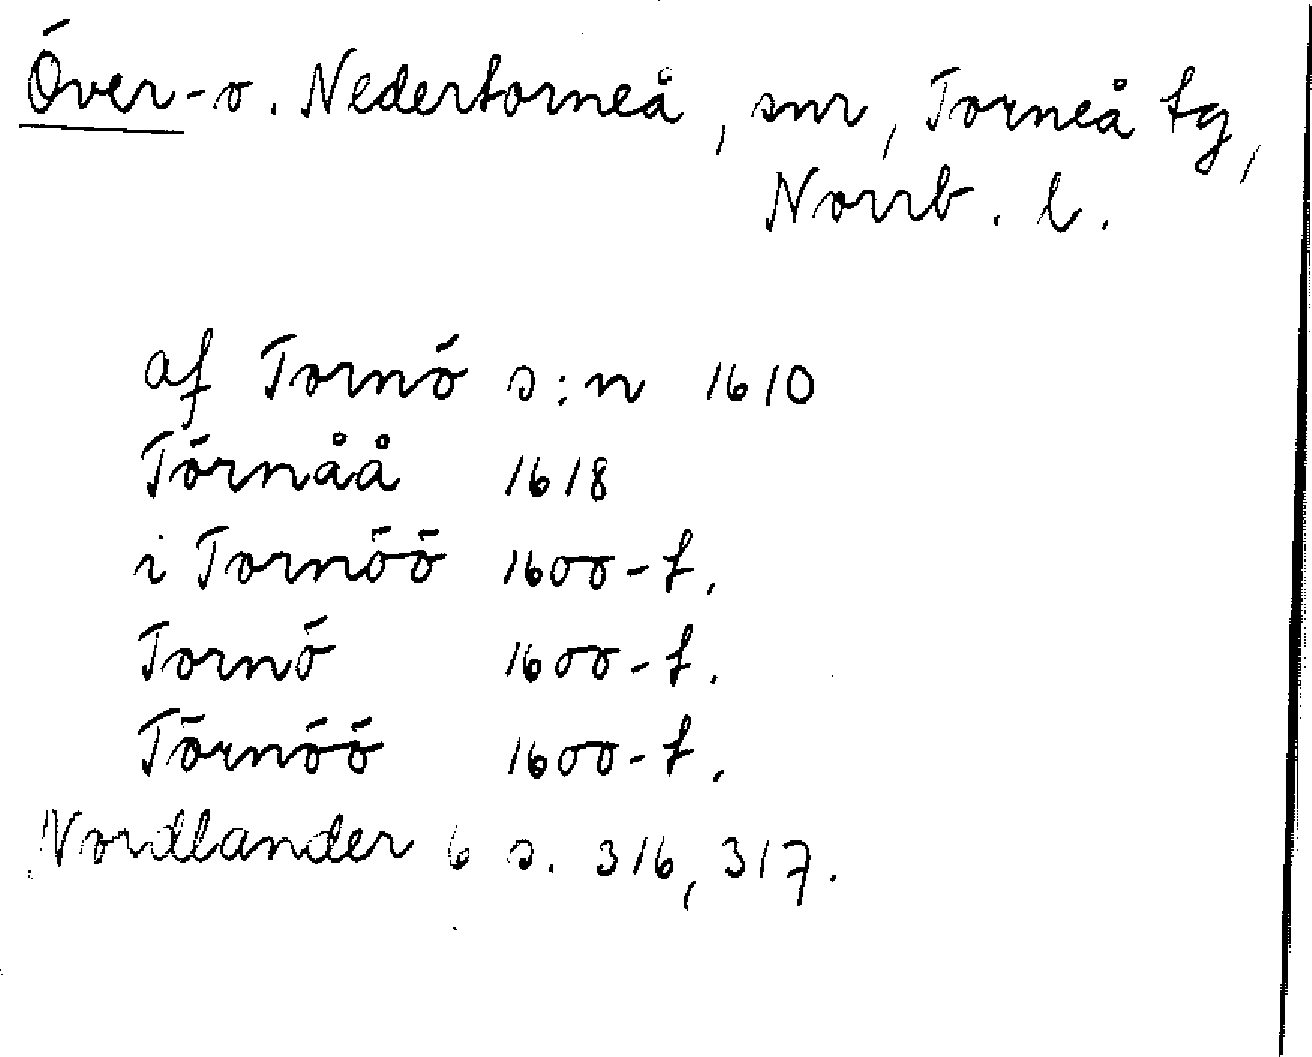 Över- o. Nedertorneå, snr, Torneå tg,
Norrb. l.
af Tornö s:n 1610
Törnåå 1618
i Tornöö 1600-t.
Tornö 1600-t.
Törnöö 1600-t.
Nordlander 6 s. 316, 317.